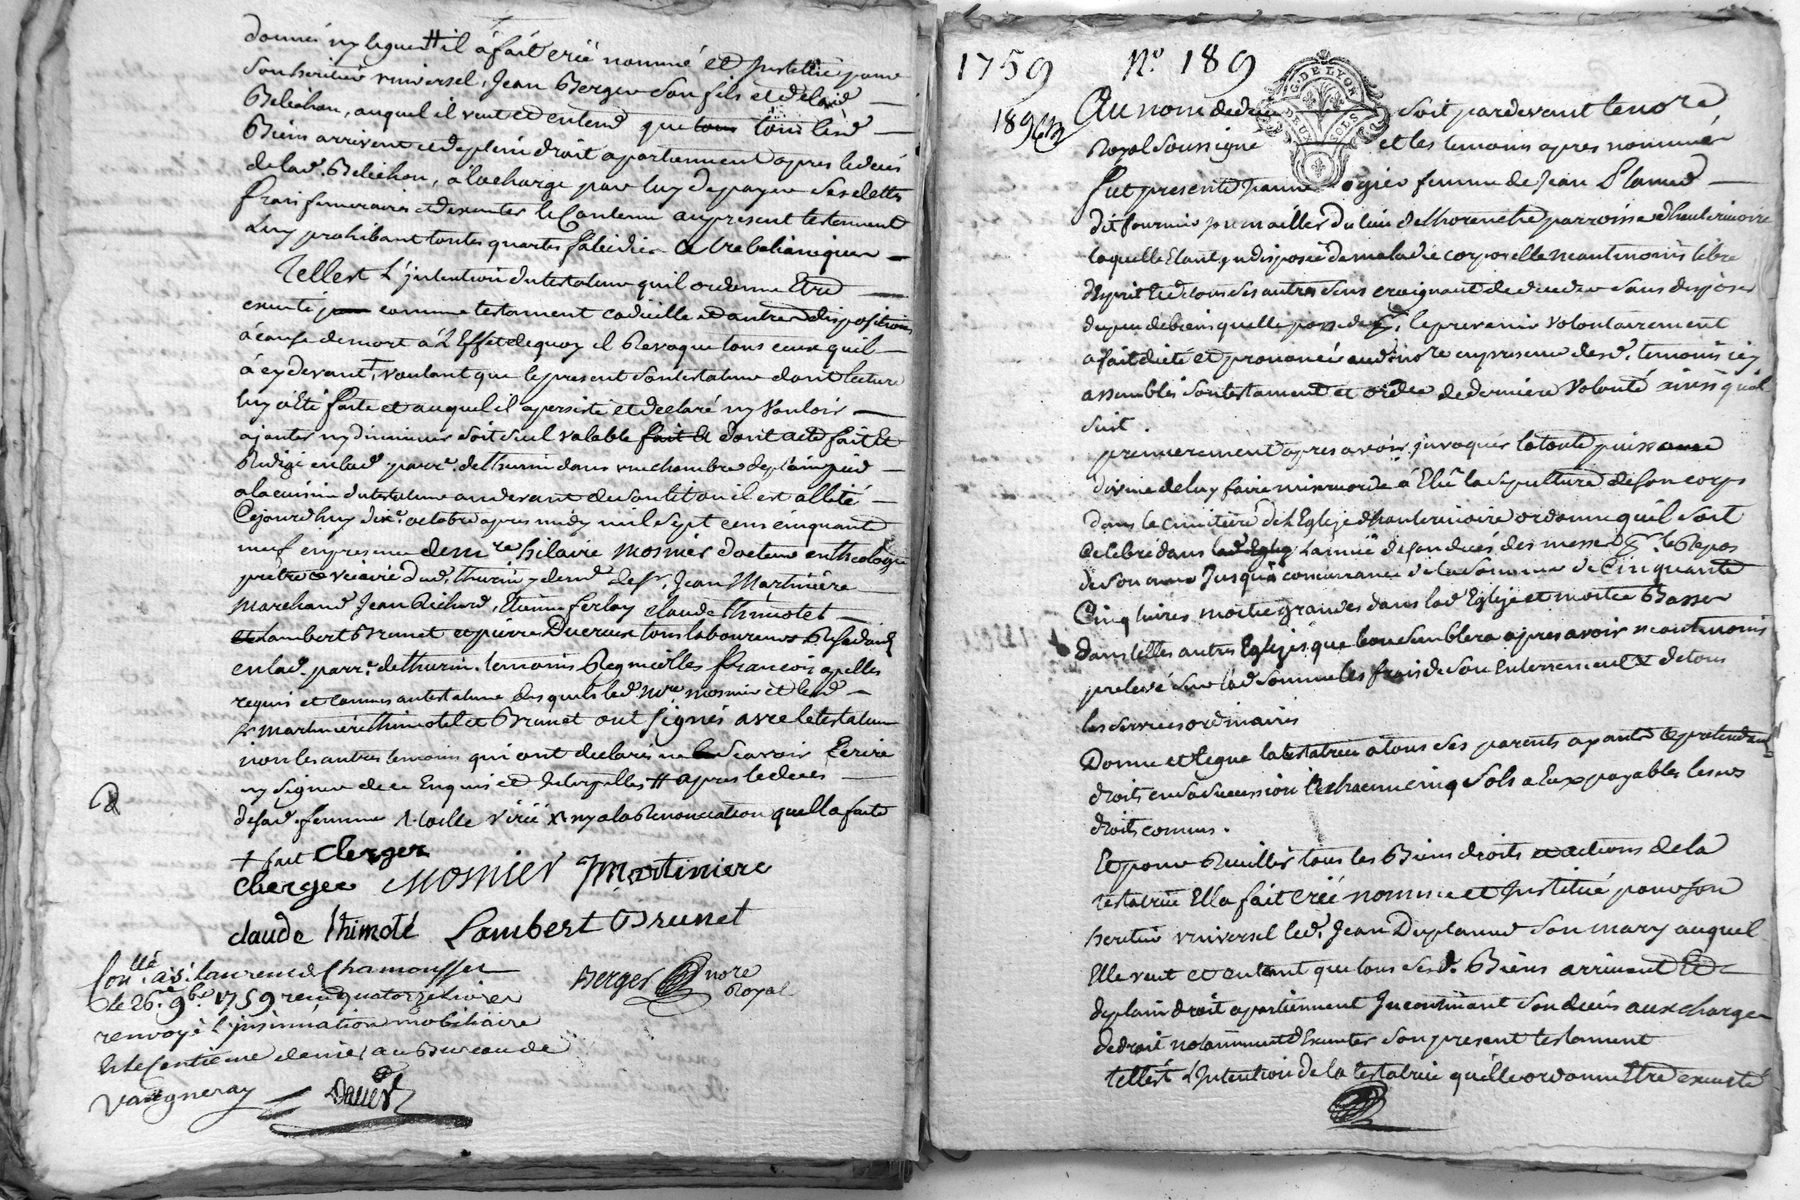 donné ny legué # il a fait créé nommé et institué pour
Son heritier universel, Jean Berger son fils et de lad.
Belichon, auquel il veut et entend que tous lesd.
Biens arrivent et de plein droit apartiennent apres le deces
de lad. Belichon, a la charge par luy de payer ses dettes
frais funeraires et d'executer le Contenu au present testament
Luy prohibant toutes quartes falcidies et trebelianiques
Telle est L'intention du testateur quil ordonne Etre
executé comme testament codicille et autres dispositions
à cause de mort à L'Effet de quoy il Revoque tous ceux quil
à cy devant + voulant que le present Son testateur dont lecture
luy a Eté faite et auquel il a persisté et declaré ny Vouloir
ajouter ny diminuer soit seul valable dont acte fait Et
Redigé en lad. parr. de thurin dans une chambre de plain pied
a la cuisine du testateur au devant de son lit ou il est allité
Cejourdhuy dix octobre apres midy mil sept cens cinquante
neuf en presence de m.re hilaire mosnier docteur en theologie
pretre vicaire dud. thurin Jean Martiniere
Marchand Jean Richard, Etienne ferlay claude thimotet
Lambert Brunet et pierre Ducreux tous laboureurs Residants
en lad. parr. de thurin temoins
requis et connus au testateur desquels led. m.re mosnier et led.
s.r martiniere thimotet et Brunet ont signés avec le testateur
non les autres temoins qui ont declarés ne Scavoir Ecrire
ny signer de ce Enquis et interpellés # apres le deces
de sad. femme
+ fait Clerger
Berger Mosnier JMartiniere
claude thimoté Lambert Brunet
Berger nore Royal
Con.llé a S.t laurens de Chamousset
le 26.e 9.bre 1759 reçu quatorze livres
renvoyé l'insinuation mobiliaire
et le Centieme denier au Bureau de
Vaugneray
1759 N.o 189
189
G. DE LYON
DEUX SOLS
Au nom de dieu Soit pardevant le no.re
Royal Soussigné et les temoins apres nommés
fut presente Jeanne ogier femme de Jean Planud
dit fournier du lieu de thorenche parroisse d'hauterivoire
laquelle Etant indisposée de maladie corporelle neantmoins libre
d'esprit Et de tous ses autres sens craignant de deceder sans disposer
du peu de biens quelle possede, le prevenir volontairement
a fait dicté et prononcé aud. no.re en presence desd. temoins icy
assemblés son testament et ordce de derniere Volonté ainsi quil
suit.
premierement apres avoir invoqués la toute puissance
divine de luy faire misericorde à Elû la sepulture de son corps
dans le cimitiere de L'Eglize d'hauterivoire ordonne quil soit
celebré dans L'année de son decés des messes p.r le Repos
de son ame Jusqu'à concurrance de la somme de Cinquante
Cinq livres moitié grandes dans lad. Eglize et moitié Basses
dans telles autres Eglizes que bon semblera apres avoir neantmoins
prelevé sur lad. somme les frais de son Enterrement & de tous
les services ordinaires
Donne et legue la testatrice a tous ses parents ayants et pretendants
droits en sa succession Et chacun cinq sols a Eux payables les ws
droits connus.
Et pour Recuillir tous les Biens droits actions de la
testatrice Ella fait créé nommé et Institué pour son
heritier universel led. Jean Duplanud son mary auquel
Elle veut et entent que tous ses d. Biens arrivent Et
de plain droit apartiennent Incontinant son deces aux charges
de droit notamment d'Executer son present testament
telle est L'Intention de la testatrice quelle ordonne Etre executé